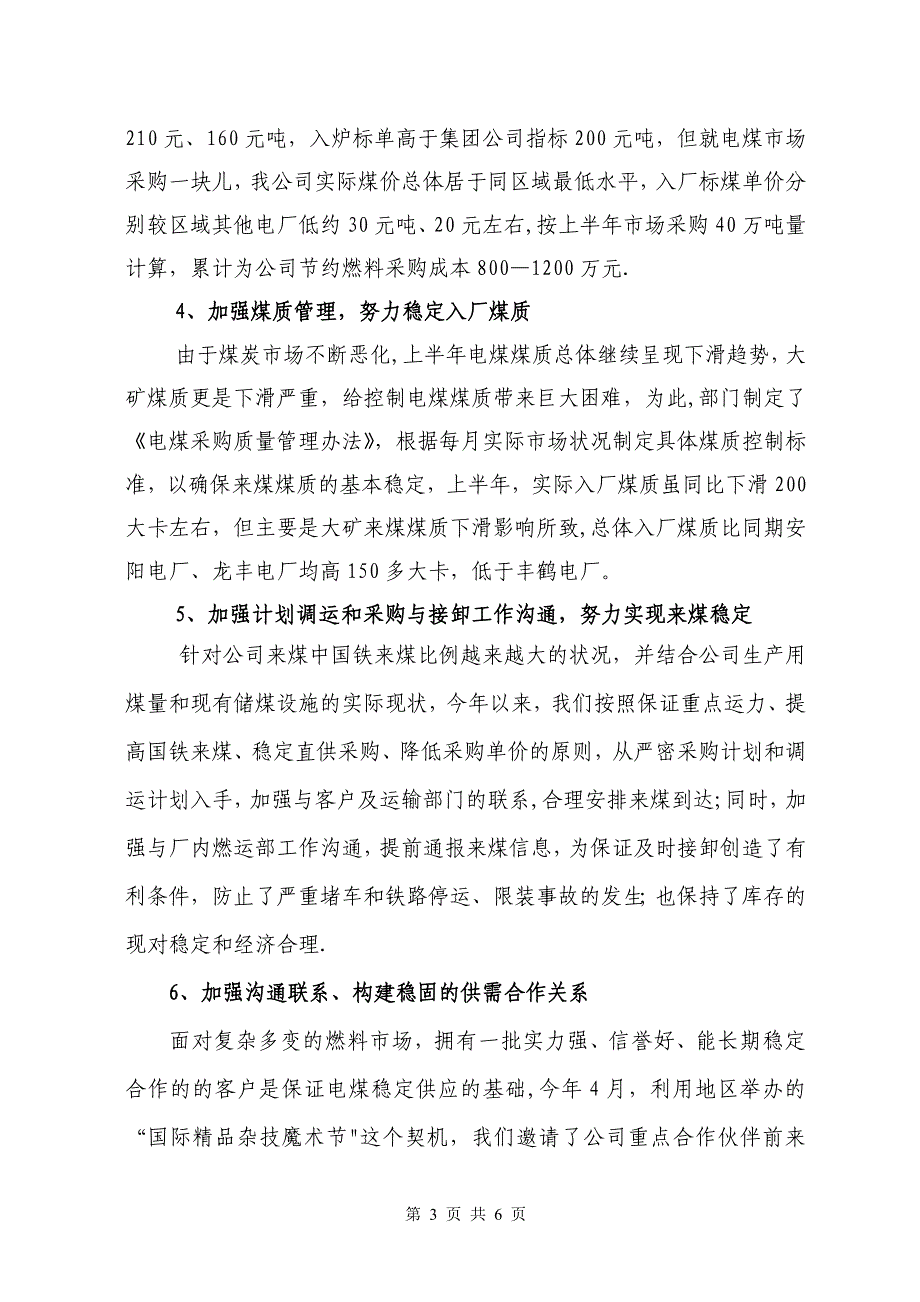 210 元、160 元吨，入炉标单高于集团公司指标 200 元吨，但就电煤市场
采购一块儿，我公司实际煤价总体居于同区域最低水平，入厂标煤单价分
别较区域其他电厂低约 30 元吨、20 元左右,按上半年市场采购 40 万吨量
计算，累计为公司节约燃料采购成本 800—1200 万元.
4、加强煤质管理，努力稳定入厂煤质
由于煤炭市场不断恶化,上半年电煤煤质总体继续呈现下滑趋势，大
矿煤质更是下滑严重，给控制电煤煤质带来巨大困难，为此,部门制定了
《电煤采购质量管理办法》，根据每月实际市场状况制定具体煤质控制标
准，以确保来煤煤质的基本稳定，上半年，实际入厂煤质虽同比下滑 200
大卡左右，但主要是大矿来煤煤质下滑影响所致,总体入厂煤质比同期安
阳电厂、龙丰电厂均高 150 多大卡，低于丰鹤电厂。
5、加强计划调运和采购与接卸工作沟通，努力实现来煤稳定
针对公司来煤中国铁来煤比例越来越大的状况，并结合公司生产用
煤量和现有储煤设施的实际现状，今年以来，我们按照保证重点运力、提
高国铁来煤、稳定直供采购、降低采购单价的原则，从严密采购计划和调
运计划入手，加强与客户及运输部门的联系,合理安排来煤到达;同时，加
强与厂内燃运部工作沟通，提前通报来煤信息，为保证及时接卸创造了有
利条件，防止了严重堵车和铁路停运、限装事故的发生;也保持了库存的
现对稳定和经济合理.
6、加强沟通联系、构建稳固的供需合作关系
面对复杂多变的燃料市场，拥有一批实力强、信誉好、能长期稳定
合作的的客户是保证电煤稳定供应的基础,今年 4 月，利用地区举办的
“国际精品杂技魔术节"这个契机，我们邀请了公司重点合作伙伴前来
第 3 页 共 6 页